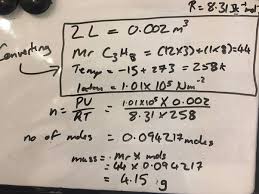 R = 8.31 JK⁻¹mol⁻¹
Converting
2L = 0.002m³
Mr C₃H₈ = (12x3)+(1x8)=44
Temp = -15 + 273 = 258k
1atm = 1.01 x 10⁵ Nm⁻²
n = PV/RT = 1.01x10⁵ x 0.002 / 8.31 x 258
no of moles = 0.094217 moles
mass = Mr x mols
= 44 x 0.094217
= 4.15 g